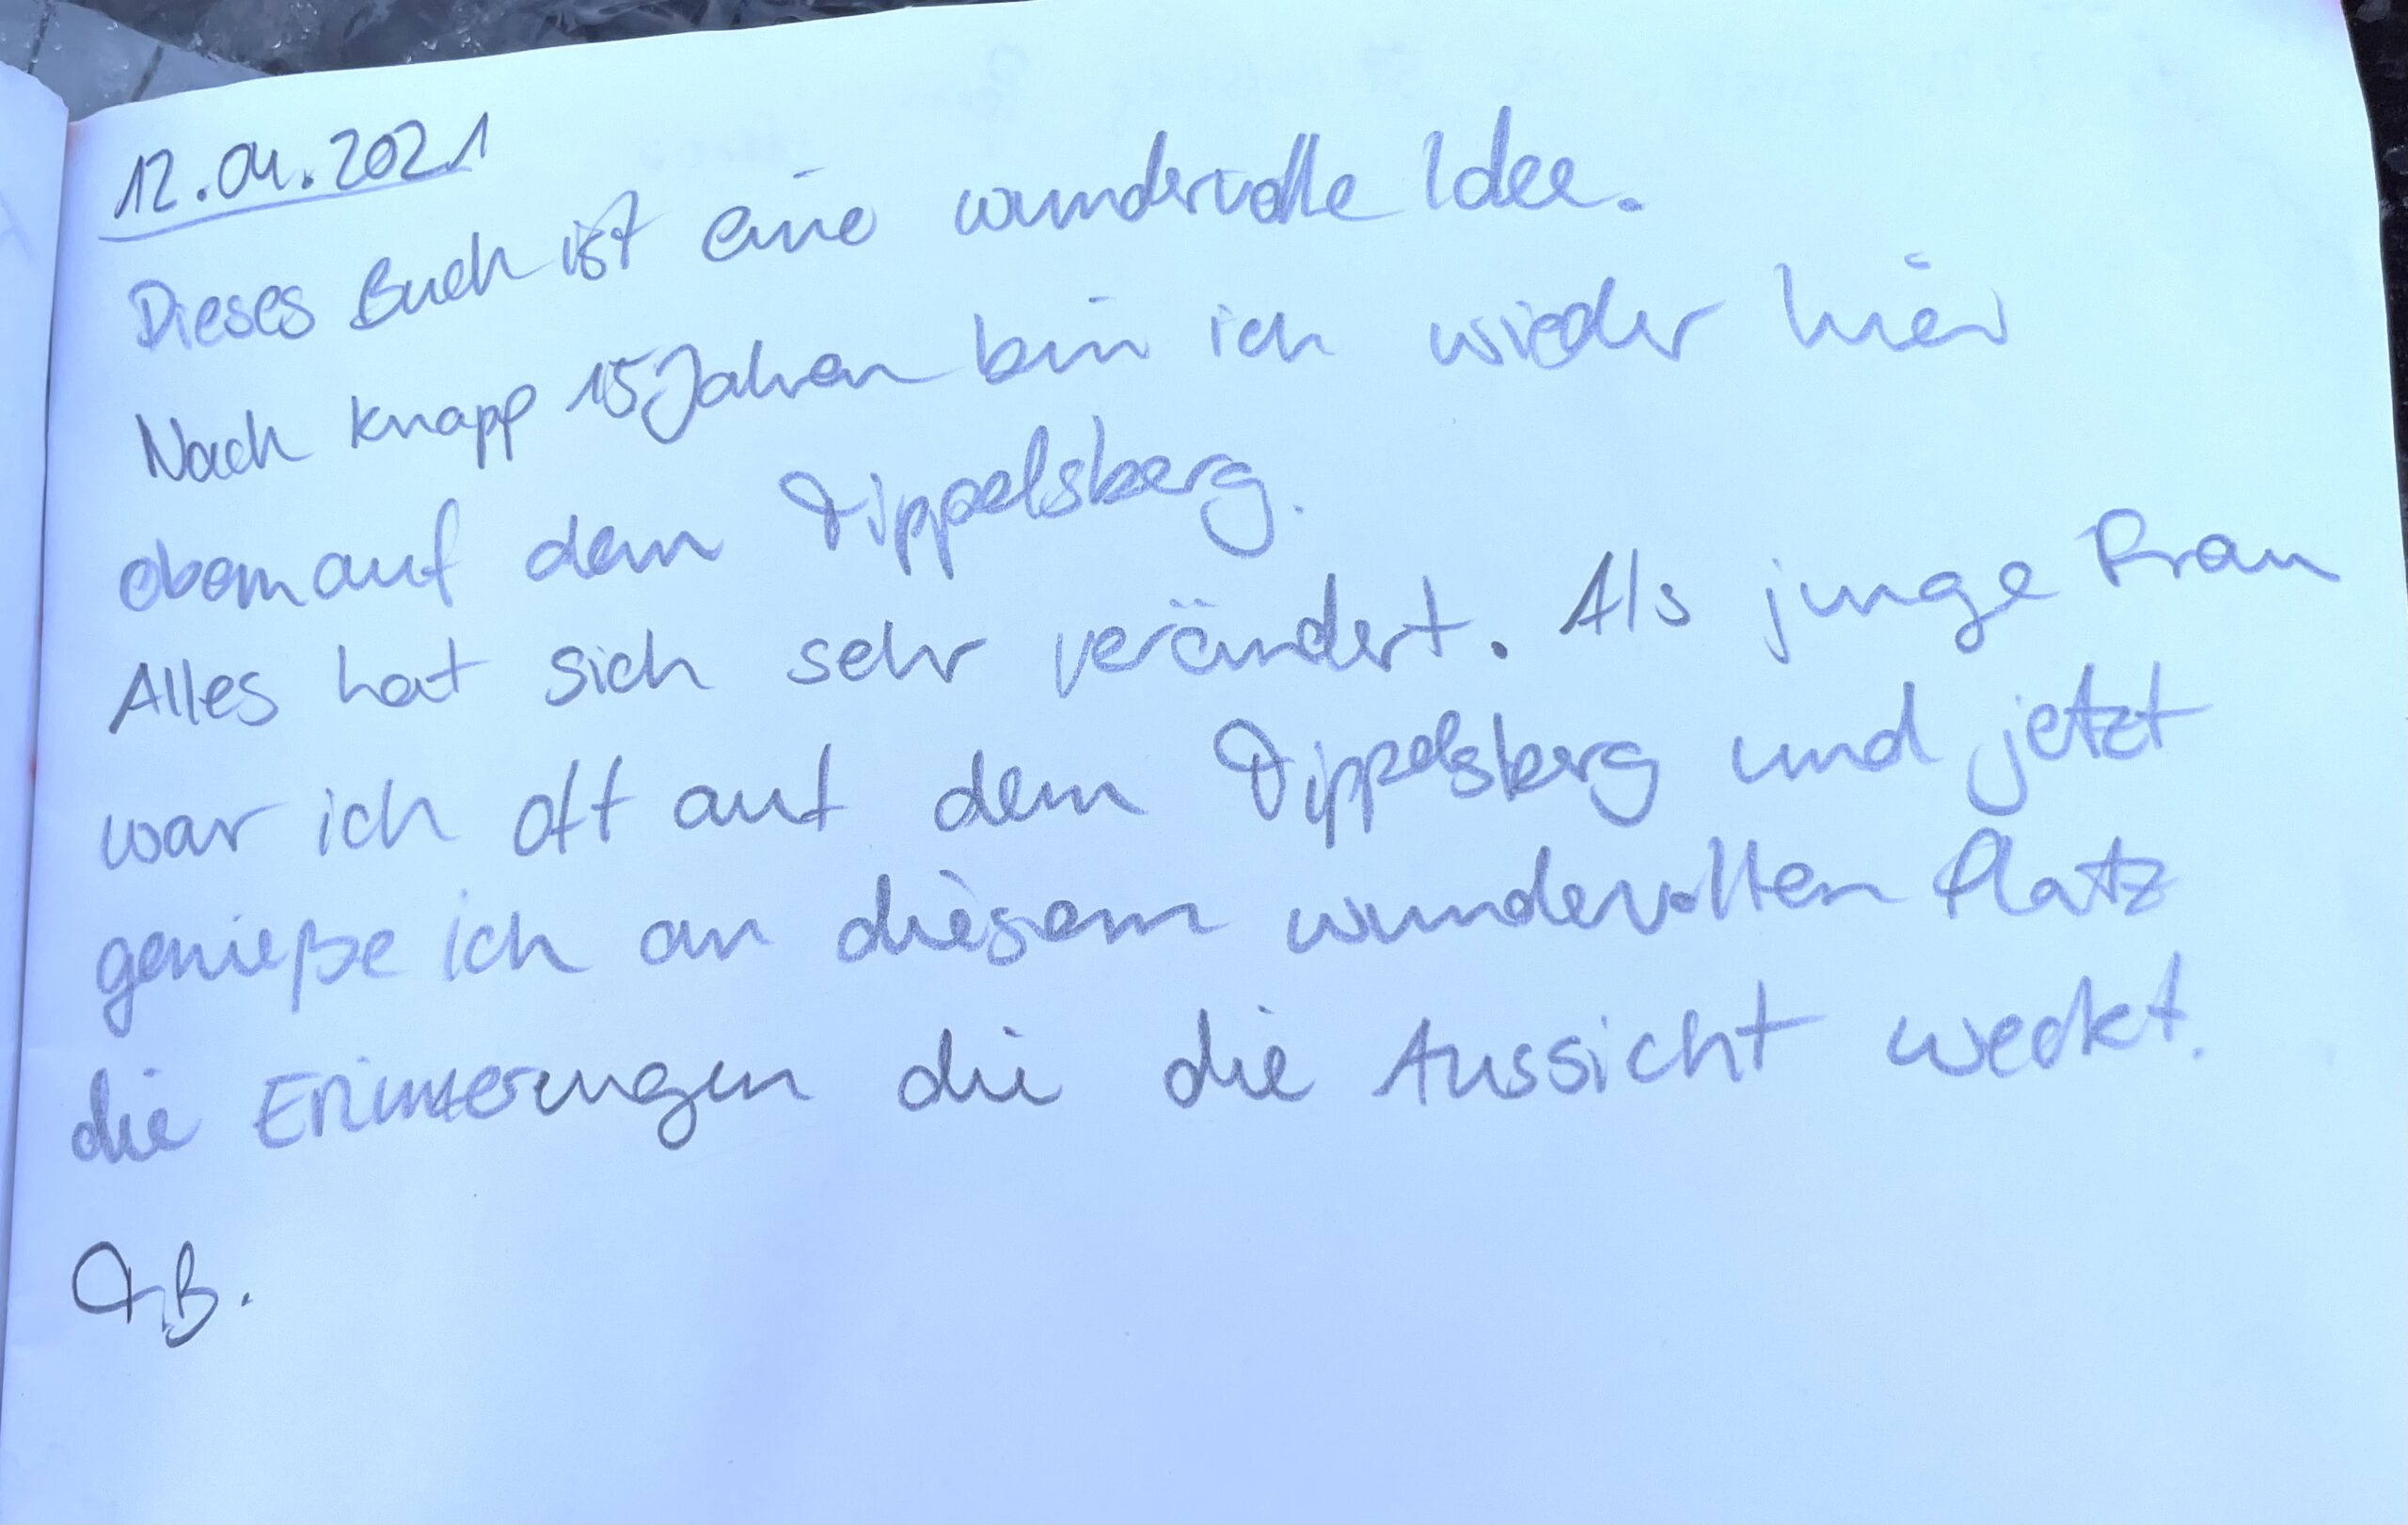 12.04.2021
Dieses Buch ist eine wundervolle Idee.
Nach knapp 15 Jahren bin ich wieder hier
oben auf dem Tippelsberg.
Alles hat sich sehr verändert. Als junge Frau
war ich oft auf dem Tippelsberg und jetzt
genieße ich an diesem wundervollen Platz
die Erinnerungen die die Aussicht weckt.
B.